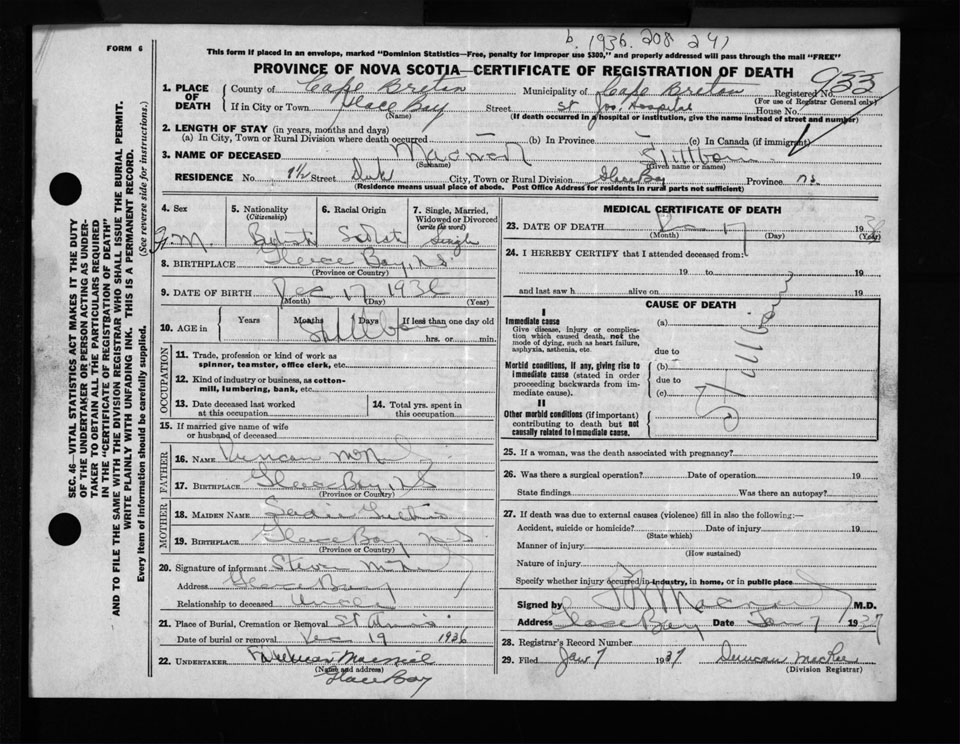 b. 1936. 208 241
FORM 6
This form if placed in an envelope, marked "Dominion Statistics—Free, penalty for improper use $300," and properly addressed will pass through the mail "FREE"
PROVINCE OF NOVA SCOTIA—CERTIFICATE OF REGISTRATION OF DEATH
933
1. PLACE OF DEATH
County of Cape Breton Municipality of Cape Breton Registered No.
(For use of Registrar General only)
If in City or Town Glace Bay Street St Jos. Hospital House No.
(Name) (If death occurred in a hospital or institution, give the name instead of street and number)
2. LENGTH OF STAY (in years, months and days)
(a) In City, Town or Rural Division where death occurred (b) In Province (c) In Canada (if immigrant)
3. NAME OF DECEASED Stillborn
(Surname) (Given name or names)
RESIDENCE No. Street City, Town or Rural Division Glace Bay Province N.S.
(Residence means usual place of abode. Post Office Address for residents in rural parts not sufficient)
SEC. 46—VITAL STATISTICS ACT MAKES IT THE DUTY
OF THE UNDERTAKER OR PERSON ACTING AS UNDER-
TAKER TO OBTAIN ALL THE PARTICULARS REQUIRED
IN THE "CERTIFICATE OF REGISTRATION OF DEATH"
AND TO FILE THE SAME WITH THE DIVISION REGISTRAR WHO SHALL ISSUE THE BURIAL PERMIT.
WRITE PLAINLY WITH UNFADING INK. THIS IS A PERMANENT RECORD.
Every item of information should be carefully supplied. (See reverse side for instructions.)
4. Sex 5. Nationality (Citizenship) 6. Racial Origin 7. Single, Married, Widowed or Divorced (write the word)
M. British Scotch Single
8. BIRTHPLACE Glace Bay, N.S.
(Province or Country)
9. DATE OF BIRTH Dec 17 1936
(Month) (Day) (Year)
10. AGE in Years Months Days If less than one day old
Stillborn hrs. or min.
OCCUPATION
11. Trade, profession or kind of work as
spinner, teamster, office clerk, etc.
12. Kind of industry or business, as cotton-
mill, lumbering, bank, etc.
13. Date deceased last worked
at this occupation
14. Total yrs. spent in
this occupation
15. If married give name of wife
or husband of deceased
FATHER
16. NAME Duncan
17. BIRTHPLACE Glace Bay, N S
(Province or Country)
MOTHER
18. MAIDEN NAME Sadie
19. BIRTHPLACE Glace Bay N.S.
(Province or Country)
20. Signature of informant Steve
Address Glace Bay
Relationship to deceased Uncle
21. Place of Burial, Cremation or Removal St Anns
Date of burial or removal Dec 19 1936
22. UNDERTAKER
(Name and address)
Glace Bay
MEDICAL CERTIFICATE OF DEATH
23. DATE OF DEATH Dec 17 1936
(Month) (Day) (Year)
24. I HEREBY CERTIFY that I attended deceased from:—
19 to 19
and last saw h alive on 19
CAUSE OF DEATH
I
Immediate cause
Give disease, injury or complica-
tion which caused death, not the
mode of dying, such as heart failure,
asphyxia, asthenia, etc.
(a)
due to
Morbid conditions, if any, giving rise to
immediate cause (stated in order
proceeding backwards from im-
mediate cause).
(b)
due to
(c)
Stillborn
II
Other morbid conditions (if important)
contributing to death but not
causally related to immediate cause.
25. If a woman, was the death associated with pregnancy?
26. Was there a surgical operation? Date of operation 19
State findings Was there an autopsy?
27. If death was due to external causes (violence) fill in also the following:—
Accident, suicide or homicide? Date of injury 19
(State which)
Manner of injury
(How sustained)
Nature of injury
Specify whether injury occurred in industry, in home, or in public place
Signed by M.D.
Address Glace Bay Date Jan 7 1937
28. Registrar's Record Number
29. Filed Jan 7 1937 Duncan MacRae